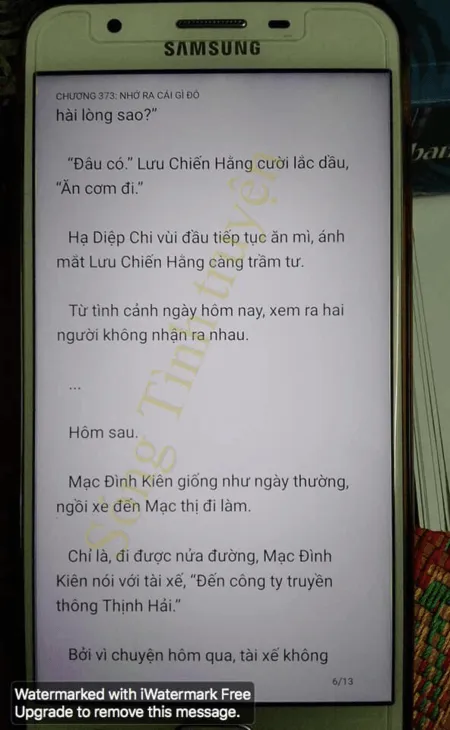 SAMSUNG
CHƯƠNG 373: NHỚ RA CÁI GÌ ĐÓ
hài lòng sao?”
“Đâu có.” Lưu Chiến Hằng cười lắc dầu,
“Ăn cơm đi.”
Hạ Diệp Chi vùi đầu tiếp tục ăn mì, ánh
mắt Lưu Chiến Hằng càng trầm tư.
Từ tình cảnh ngày hôm nay, xem ra hai
người không nhận ra nhau.
...
Hôm sau.
Mạc Đình Kiên giống như ngày thường,
ngồi xe đến Mạc thị đi làm.
Chỉ là, đi được nửa đường, Mạc Đình
Kiên nói với tài xế, “Đến công ty truyền
thông Thịnh Hải.”
Bởi vì chuyện hôm qua, tài xế không
6/13
Sóng Tình truyện
Watermarked with iWatermark Free
Upgrade to remove this message.